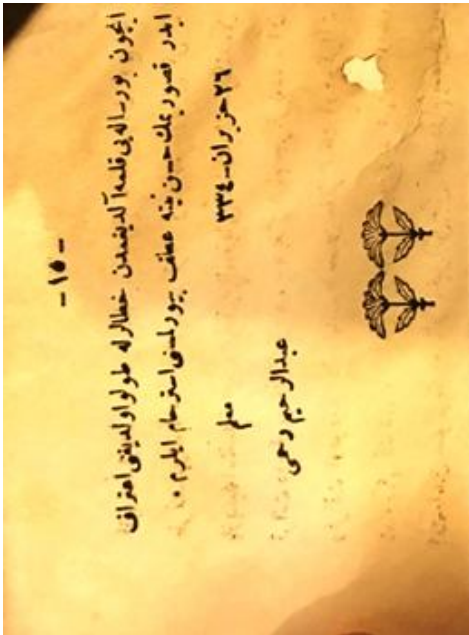 - ١٥ -
ایچون بو رساله‌یی قلمه آلدیغمدن خطالرله طولو اولدیغنی اعتراف
ایدر قصوریمك حسن نیته عطف بیورلمسنی استرحام ایلرم ٠
٢٦ حزیران - ٣٣٤
معلم
عبدالرحیم رحمی